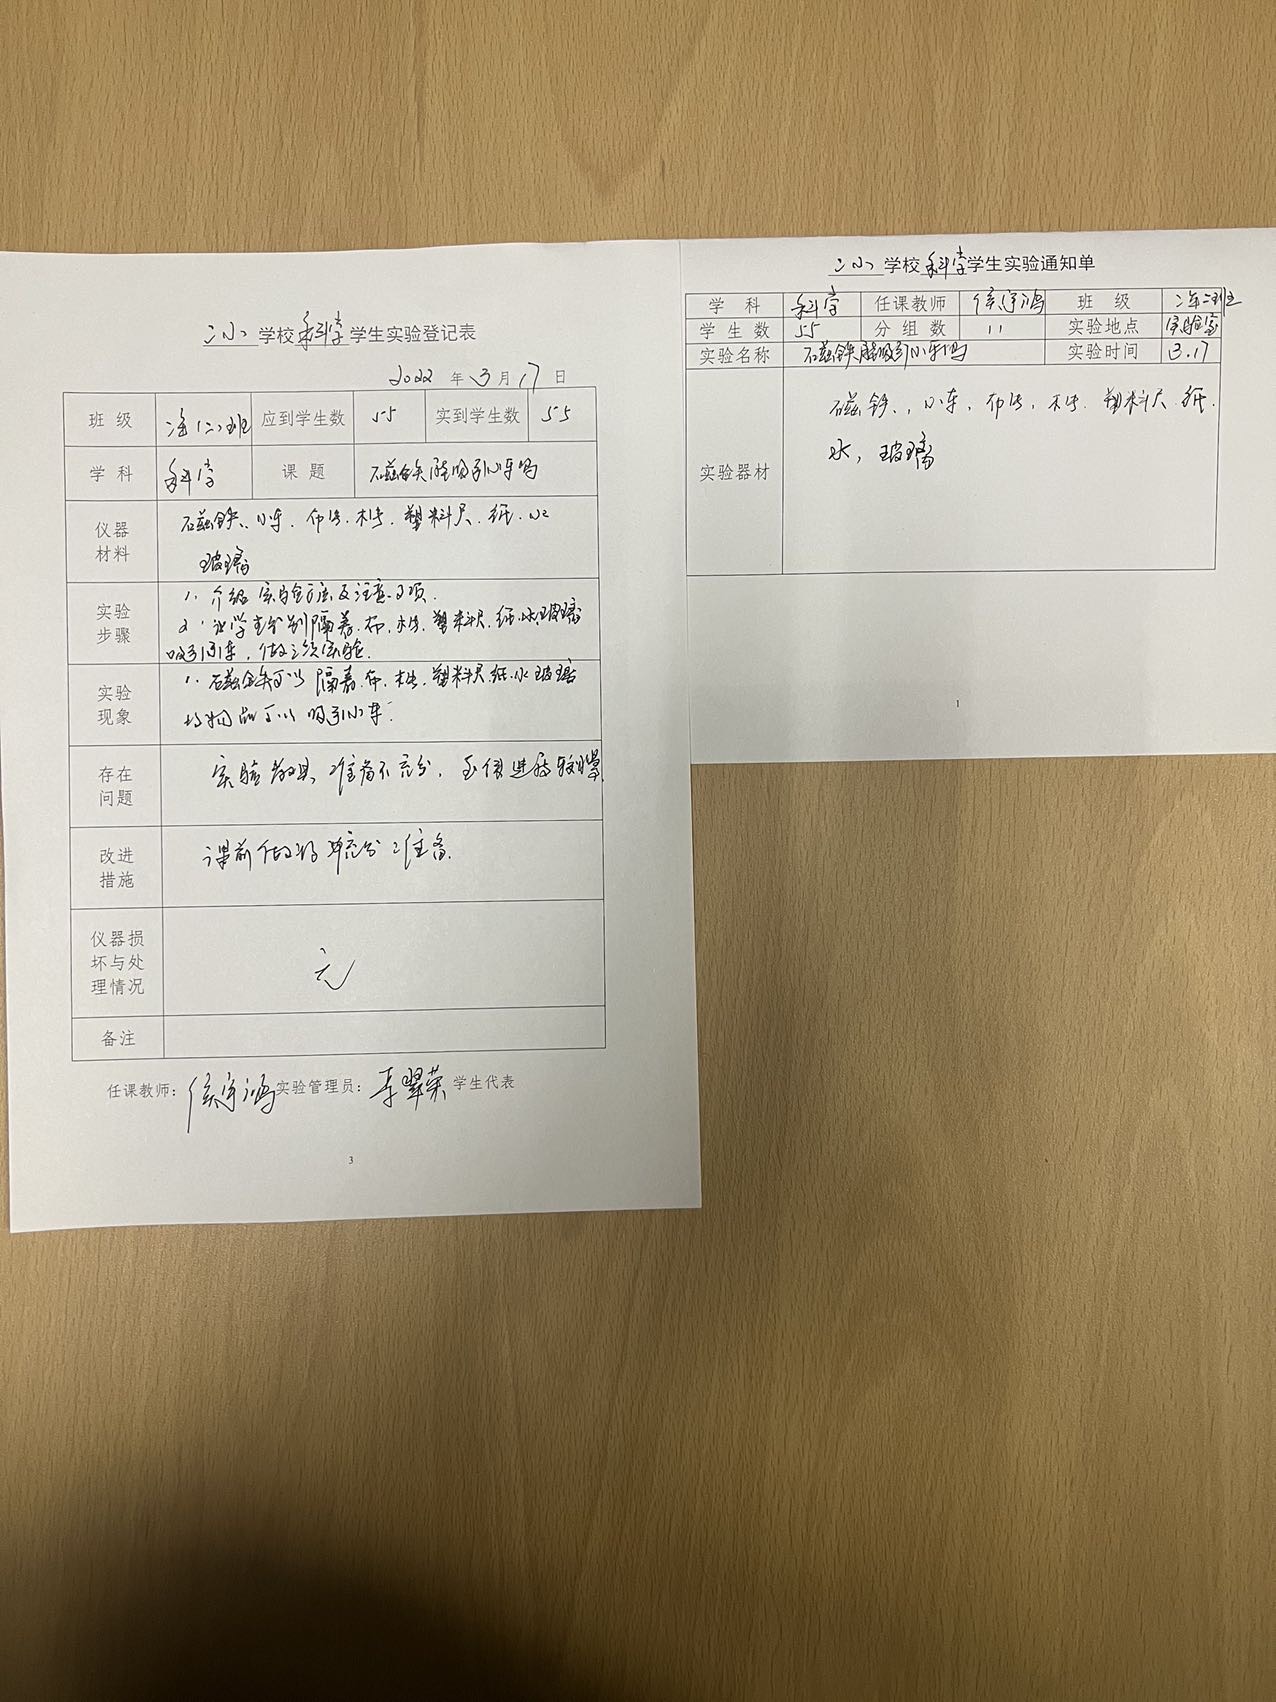 二小学校科学学生实验登记表
2022年3月17日
班级 二年(二)班 应到学生数 55 实到学生数 55
学科 科学 课题 磁铁能吸引小车吗
仪器材料 磁铁、小车、布片、木片、塑料尺、纸、水
玻璃
实验步骤 1、介绍实验方法及注意事项.
2、让学生分别隔着、布、木片、塑料尺、纸、水、玻璃
吸引小车,做这组实验.
实验现象 1、磁铁可以隔着、布、木片、塑料尺、纸、水、玻璃
物品可以吸引小车.
存在问题 实验教具准备不充分,
改进措施 课前做好充分准备.
仪器损坏与处理情况 无
备注
任课教师: 侯宇鸿 实验管理员: 李翠荣 学生代表
3
二小学校科学学生实验通知单
学科 科学 任课教师 侯宇鸿 班级 二年二班
学生数 55 分组数 11 实验地点 实验室
实验名称 磁铁能吸引小车吗 实验时间 3.17
实验器材 磁铁、小车,布片,木片.塑料尺.纸.
水,玻璃
1